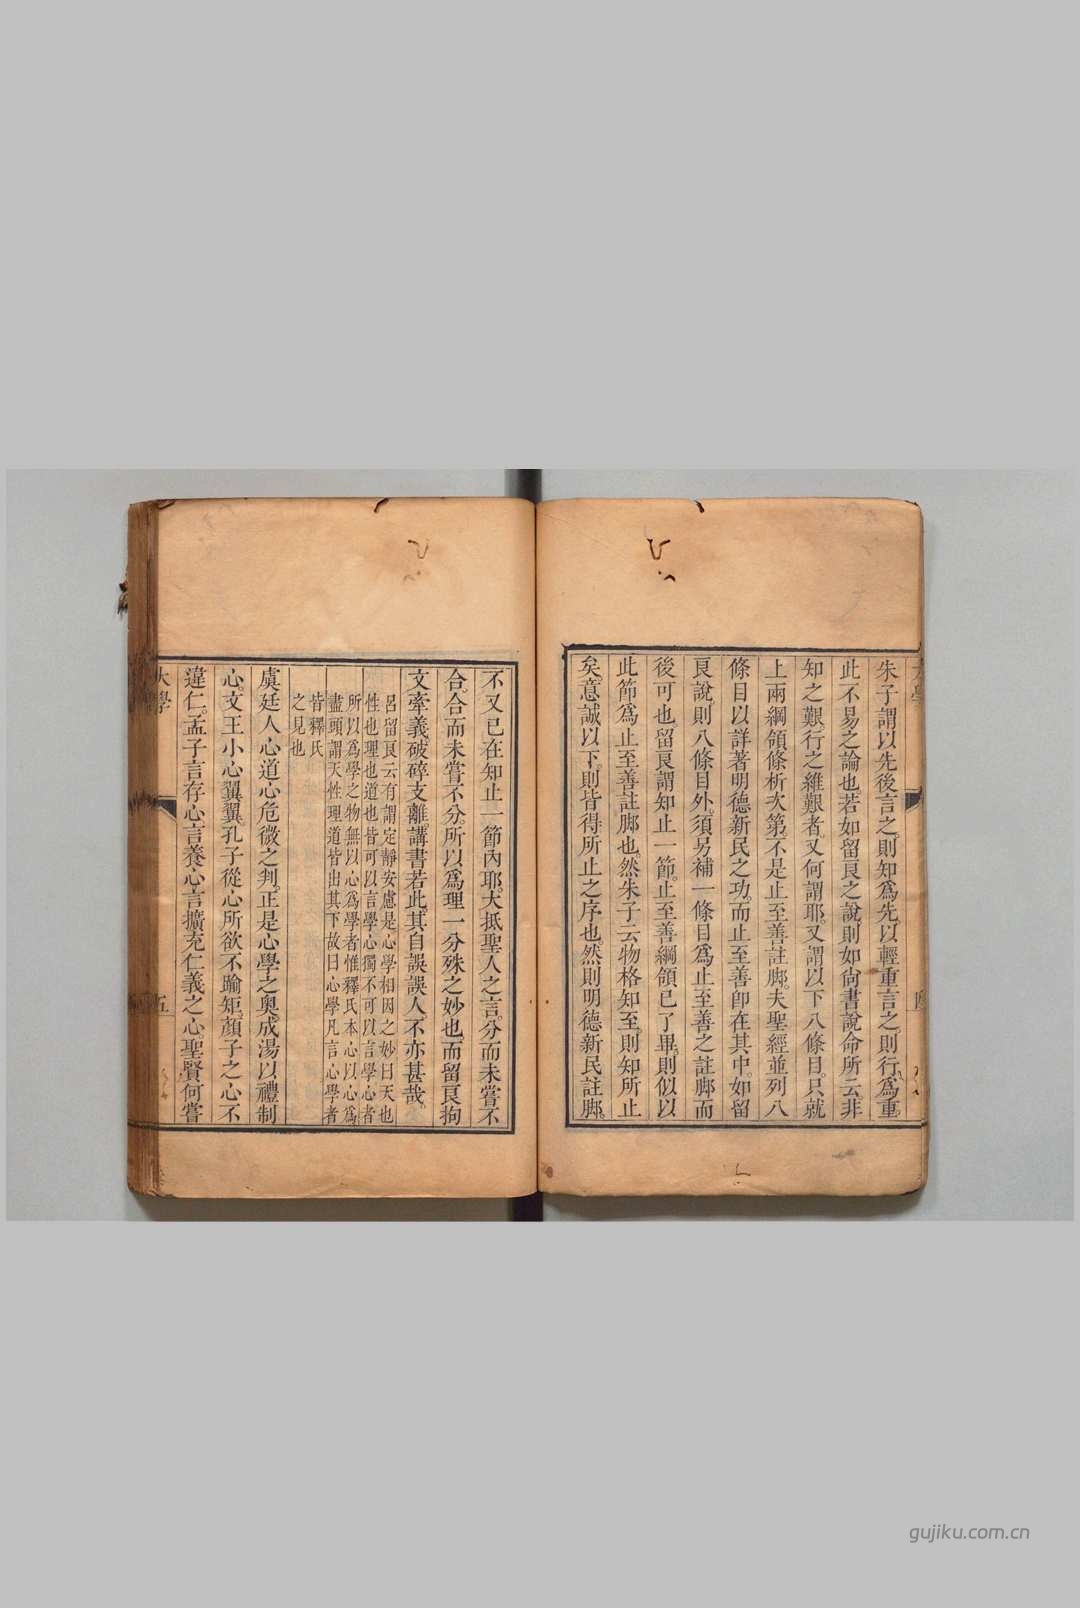 朱子謂以先後言之則知爲先以輕重言之則行爲重
此不易之論也若如留良之說則如尙書說命所云非
知之艱行之維艱者又何謂耶又謂以下八條目只就
上兩綱領條析次第不是止至善註脚夫聖經並列八
條目以詳著明德新民之功而止至善卽在其中如留
良說則八條目外須另補一條目爲止至善之註脚而
後可也留良謂知止一節止至善綱領已了畢則似以
此節爲止至善註脚也然朱子云物格知至則知所止
矣意誠以下則皆得所止之序也然則明德新民註脚
不又已在知止一節內耶大抵聖人之言分而未嘗不
合合而未嘗不分所以爲理一分殊之妙也而留良拘
文牽義破碎支離講書若此其自誤誤人不亦甚哉
呂留良云有謂定靜安慮是心學相因之妙曰天也
性也理也道也皆可以言學心獨不可以言學心者
所以爲學之物無以心爲學者惟釋氏本心以心爲
盡頭謂天性理道皆出其下故曰心學凡言心學者
皆釋氏
之見也
虞廷人心道心危微之判正是心學之奧成湯以禮制
心文王小心翼翼孔子從心所欲不踰矩顏子之心不
違仁孟子言存心言養心言擴充仁義之心聖賢何嘗
大學
五
gujiku.com.cn